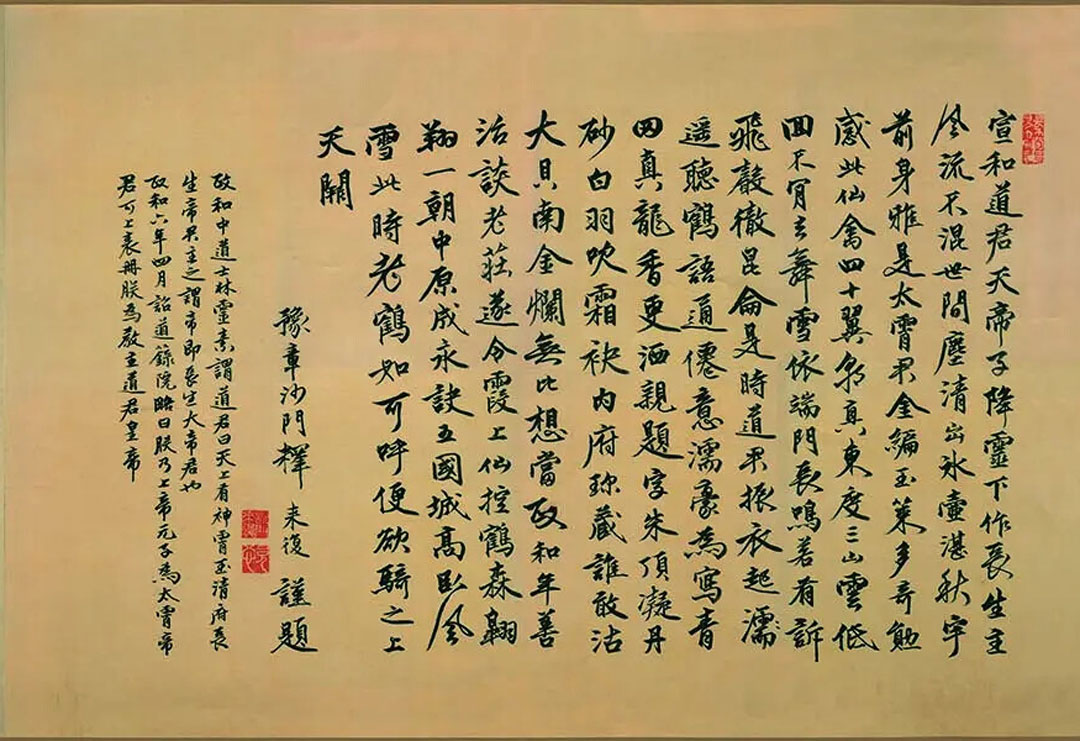 宣和道君天帝子降靈下作長生主
風流不混世間塵清出冰壺湛秋宇
前身雅是太霄君金編玉策多奇勛
感此仙禽四十翼朝真東度三山雲低
回不肯去舞雪依端門長鳴若有訴
飛聲徹昆侖是時道君振衣起濡
遥聽鶴語通僊意濡豪為寫青
田真龍香更洒親題字朱頂凝丹
砂白羽吹霜袂内府珍藏誰敢沽
大貝南金爛無比想當政和年善
治談老莊遂令霞上仙控鶴森翱
翔一朝中原成永訣五國城高臥風
雪此時老鶴如可呼便欲騎之上
天闕
豫章沙門釋 来復 謹題
政和中道士林靈素謂道君曰天上有神霄玉清府長
生帝君主之謂帝即長生大帝君也
政和六年四月詔道錄院略曰朕乃上帝元子為太霄帝
君可上表冊朕為教主道君皇帝